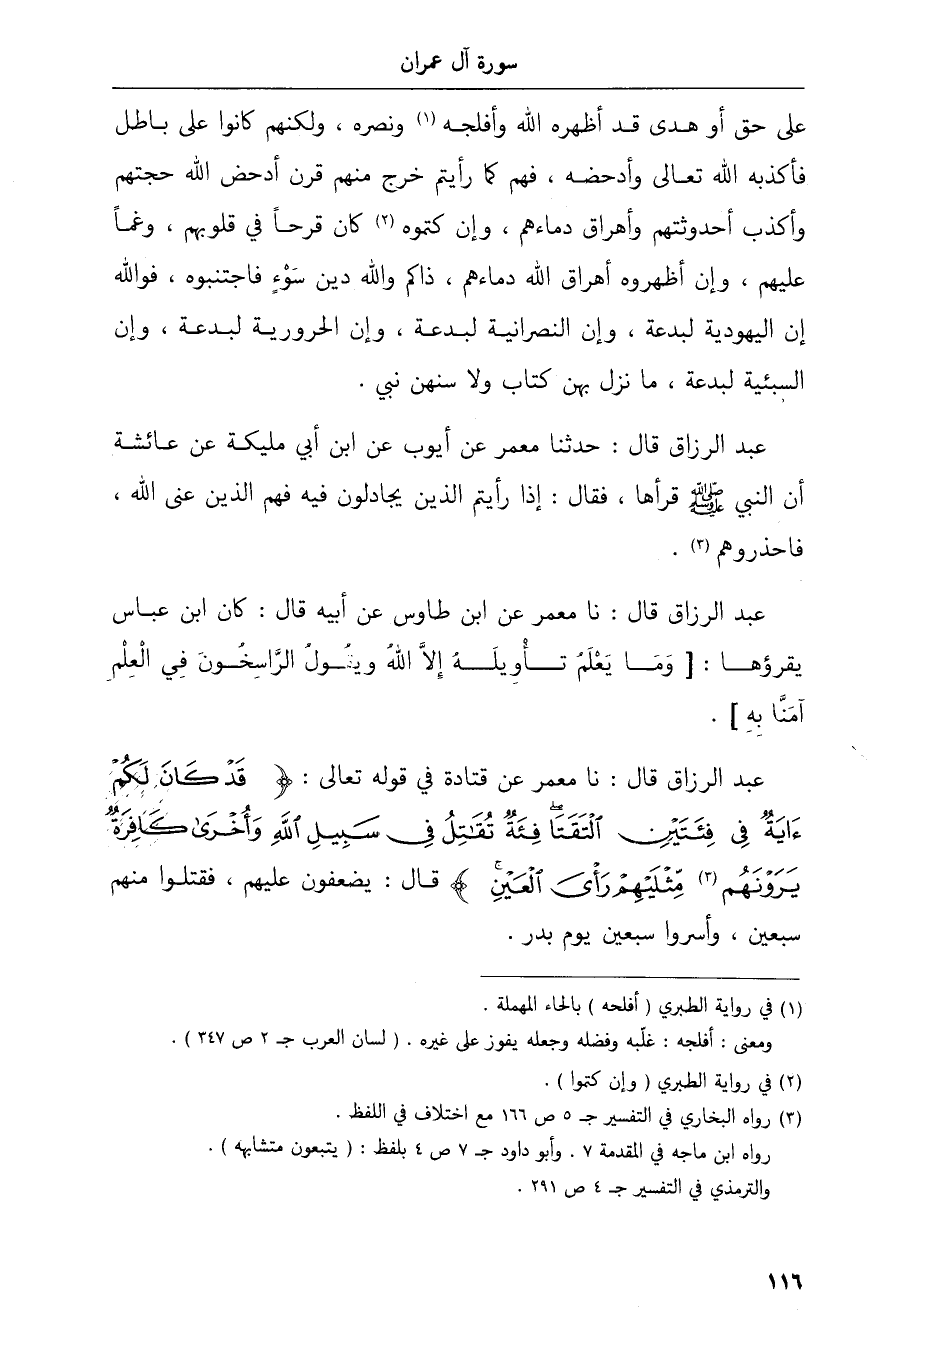 سورة آل عمران
على حق أو هدى قد أظهره الله وأفلجه (١) ونصره ، ولكنهم كانوا على باطل
فأكذبه الله تعالى وأدحضه ، فهم كما رأيتم خرج منهم قرن أدحض الله حجتهم
وأكذب أحدوثتهم وأهراق دماءهم ، وإن كتموه (٢) كان قرحاً في قلوبهم ، وغماً
عليهم ، وإن أظهروه أهراق الله دماءهم ، ذاكم والله دين سَوْءٍ فاجتنبوه ، فوالله
إن اليهودية لبدعة ، وإن النصرانية لبدعة ، وإن الحرورية لبدعة ، وإن
السبئية لبدعة ، ما نزل بهن كتاب ولا سنهن نبي .
عبد الرزاق قال : حدثنا معمر عن أيوب عن ابن أبي مليكة عن عائشة
أن النبي ﷺ قرأها ، فقال : إذا رأيتم الذين يجادلون فيه فهم الذين عنى الله ،
فاحذروهم (٣) .
عبد الرزاق قال : نا معمر عن ابن طاوس عن أبيه قال : كان ابن عباس
يقرؤها : [ وَمَا يَعْلَمُ تأْويلَهُ إلاَّ اللهُ ويقُولُ الرَّاسِخُونَ فِي الْعِلْمِ
آمَنَّا بِهِ ] .
عبد الرزاق قال : نا معمر عن قتادة في قوله تعالى : ﴿ قَدْ كَانَ لَكُمْ
ءَايَةٌ فِى فِئَتَيْنِ ٱلْتَقَتَا فِئَةٌ تُقَٰتِلُ فِى سَبِيلِ ٱللَّهِ وَأُخْرَىٰ كَافِرَةٌ
يَرَوْنَهُم (٣) مِّثْلَيْهِمْ رَأْىَ ٱلْعَيْنِ ﴾ قال : يضعفون عليهم ، فقتلوا منهم
سبعين ، وأسروا سبعين يوم بدر .
(١) في رواية الطبري ( أفلحه ) بالحاء المهملة .
ومعنى : أفلجه : غلّبه وفضله وجعله يفوز على غيره . ( لسان العرب جـ ٢ ص ٣٤٧ ) .
(٢) في رواية الطبري ( وإن كتموا ) .
(٣) رواه البخاري في التفسير جـ ٥ ص ١٦٦ مع اختلاف في اللفظ .
رواه ابن ماجه في المقدمة ٧ . وأبو داود جـ ٧ ص ٤ بلفظ : ( يتبعون متشابهه ) .
والترمذي في التفسير جـ ٤ ص ٢٩١ .
١١٦